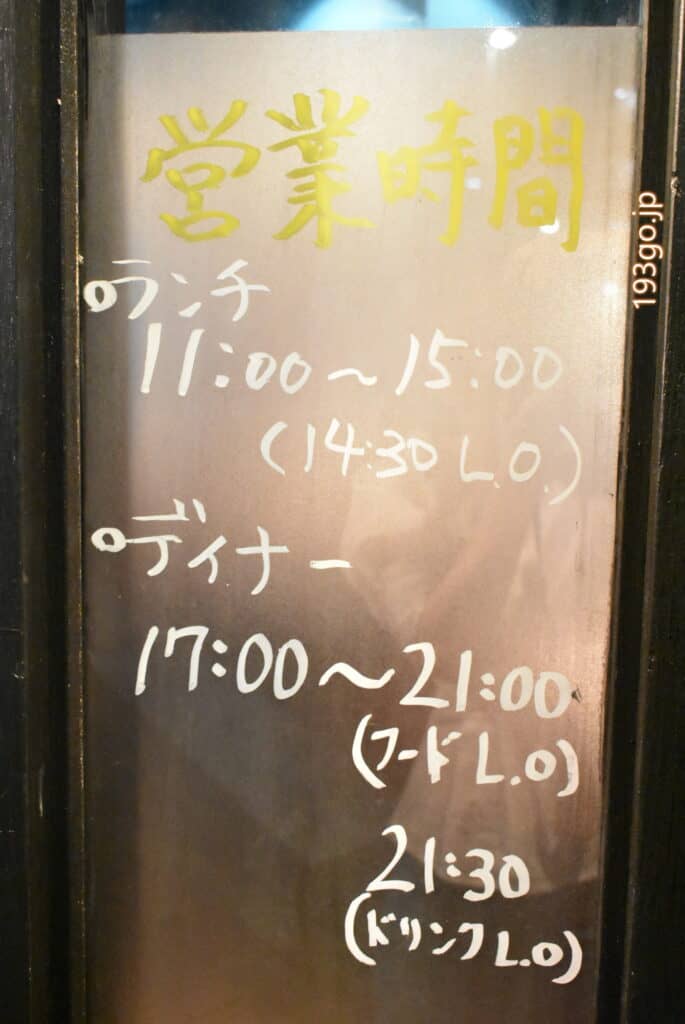 営業時間
○ランチ
11:00～15:00
(14:30 L.O.)
○ディナー
17:00～21:00
(フードL.O)
21:30
(ドリンクL.O)
193go.jp